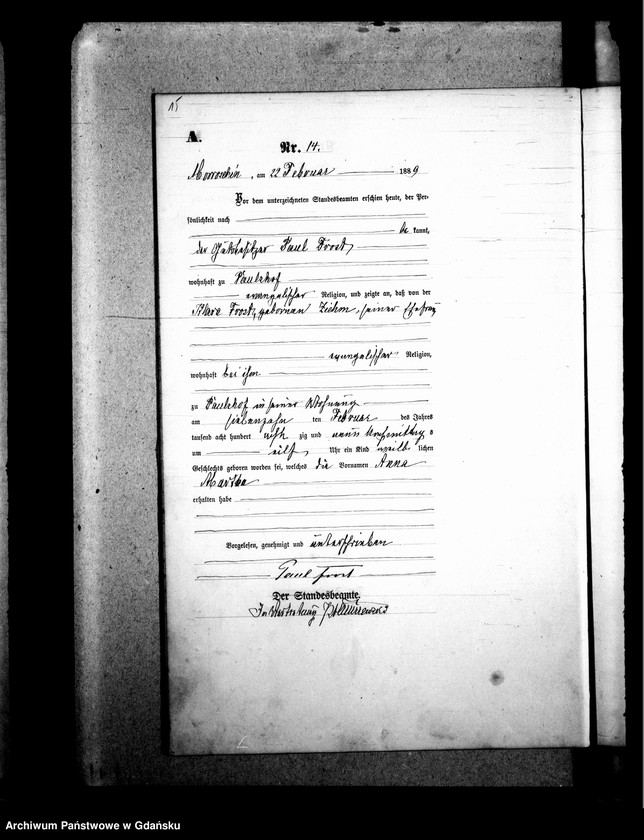 15
A.
Nr. 14.
am 22 Februar 1889
Vor dem unterzeichneten Standesbeamten erschien heute, der Per-
sönlichkeit nach
be kannt,
der Gutsbesitzer Paul Frost,
wohnhaft zu Paulshof
evangelischer Religion, und zeigte an, daß von der
Klara Frost, geborenen Ziehm, seiner Ehefrau
evangelischer Religion,
wohnhaft bei ihm
zu Paulshof in seiner Wohnung
am siebenzehn ten Februar des Jahres
tausend acht hundert acht zig und neun Vormittags
um eilf Uhr ein Kind weib lichen
Geschlechts geboren worden sei, welches die Vornamen Anna
Martha
erhalten habe
Vorgelesen, genehmigt und unterschrieben
Paul Frost
Der Standesbeamte.
In Vertretung
Archiwum Państwowe w Gdańsku